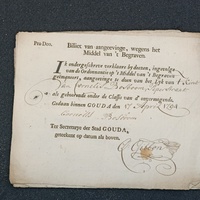 Pro Deo.
Billet van aangeevinge, wegens het
Middel van 't Begraven.
Ik ondergeschreve verklaare by deezen, ingevolge
van de Ordonnantie op 't Middel van 't Begraven
geëmaneert, aangeevinge te doen van het Lyk van 't Kind
Jan
als gehoorende onder de Classis van d' onvermogende.
Gedaan binnen GOUDA den 17 April
Cornelis
Ter Secretarye der Stad GOUDA,
geteekent op datum als boven.